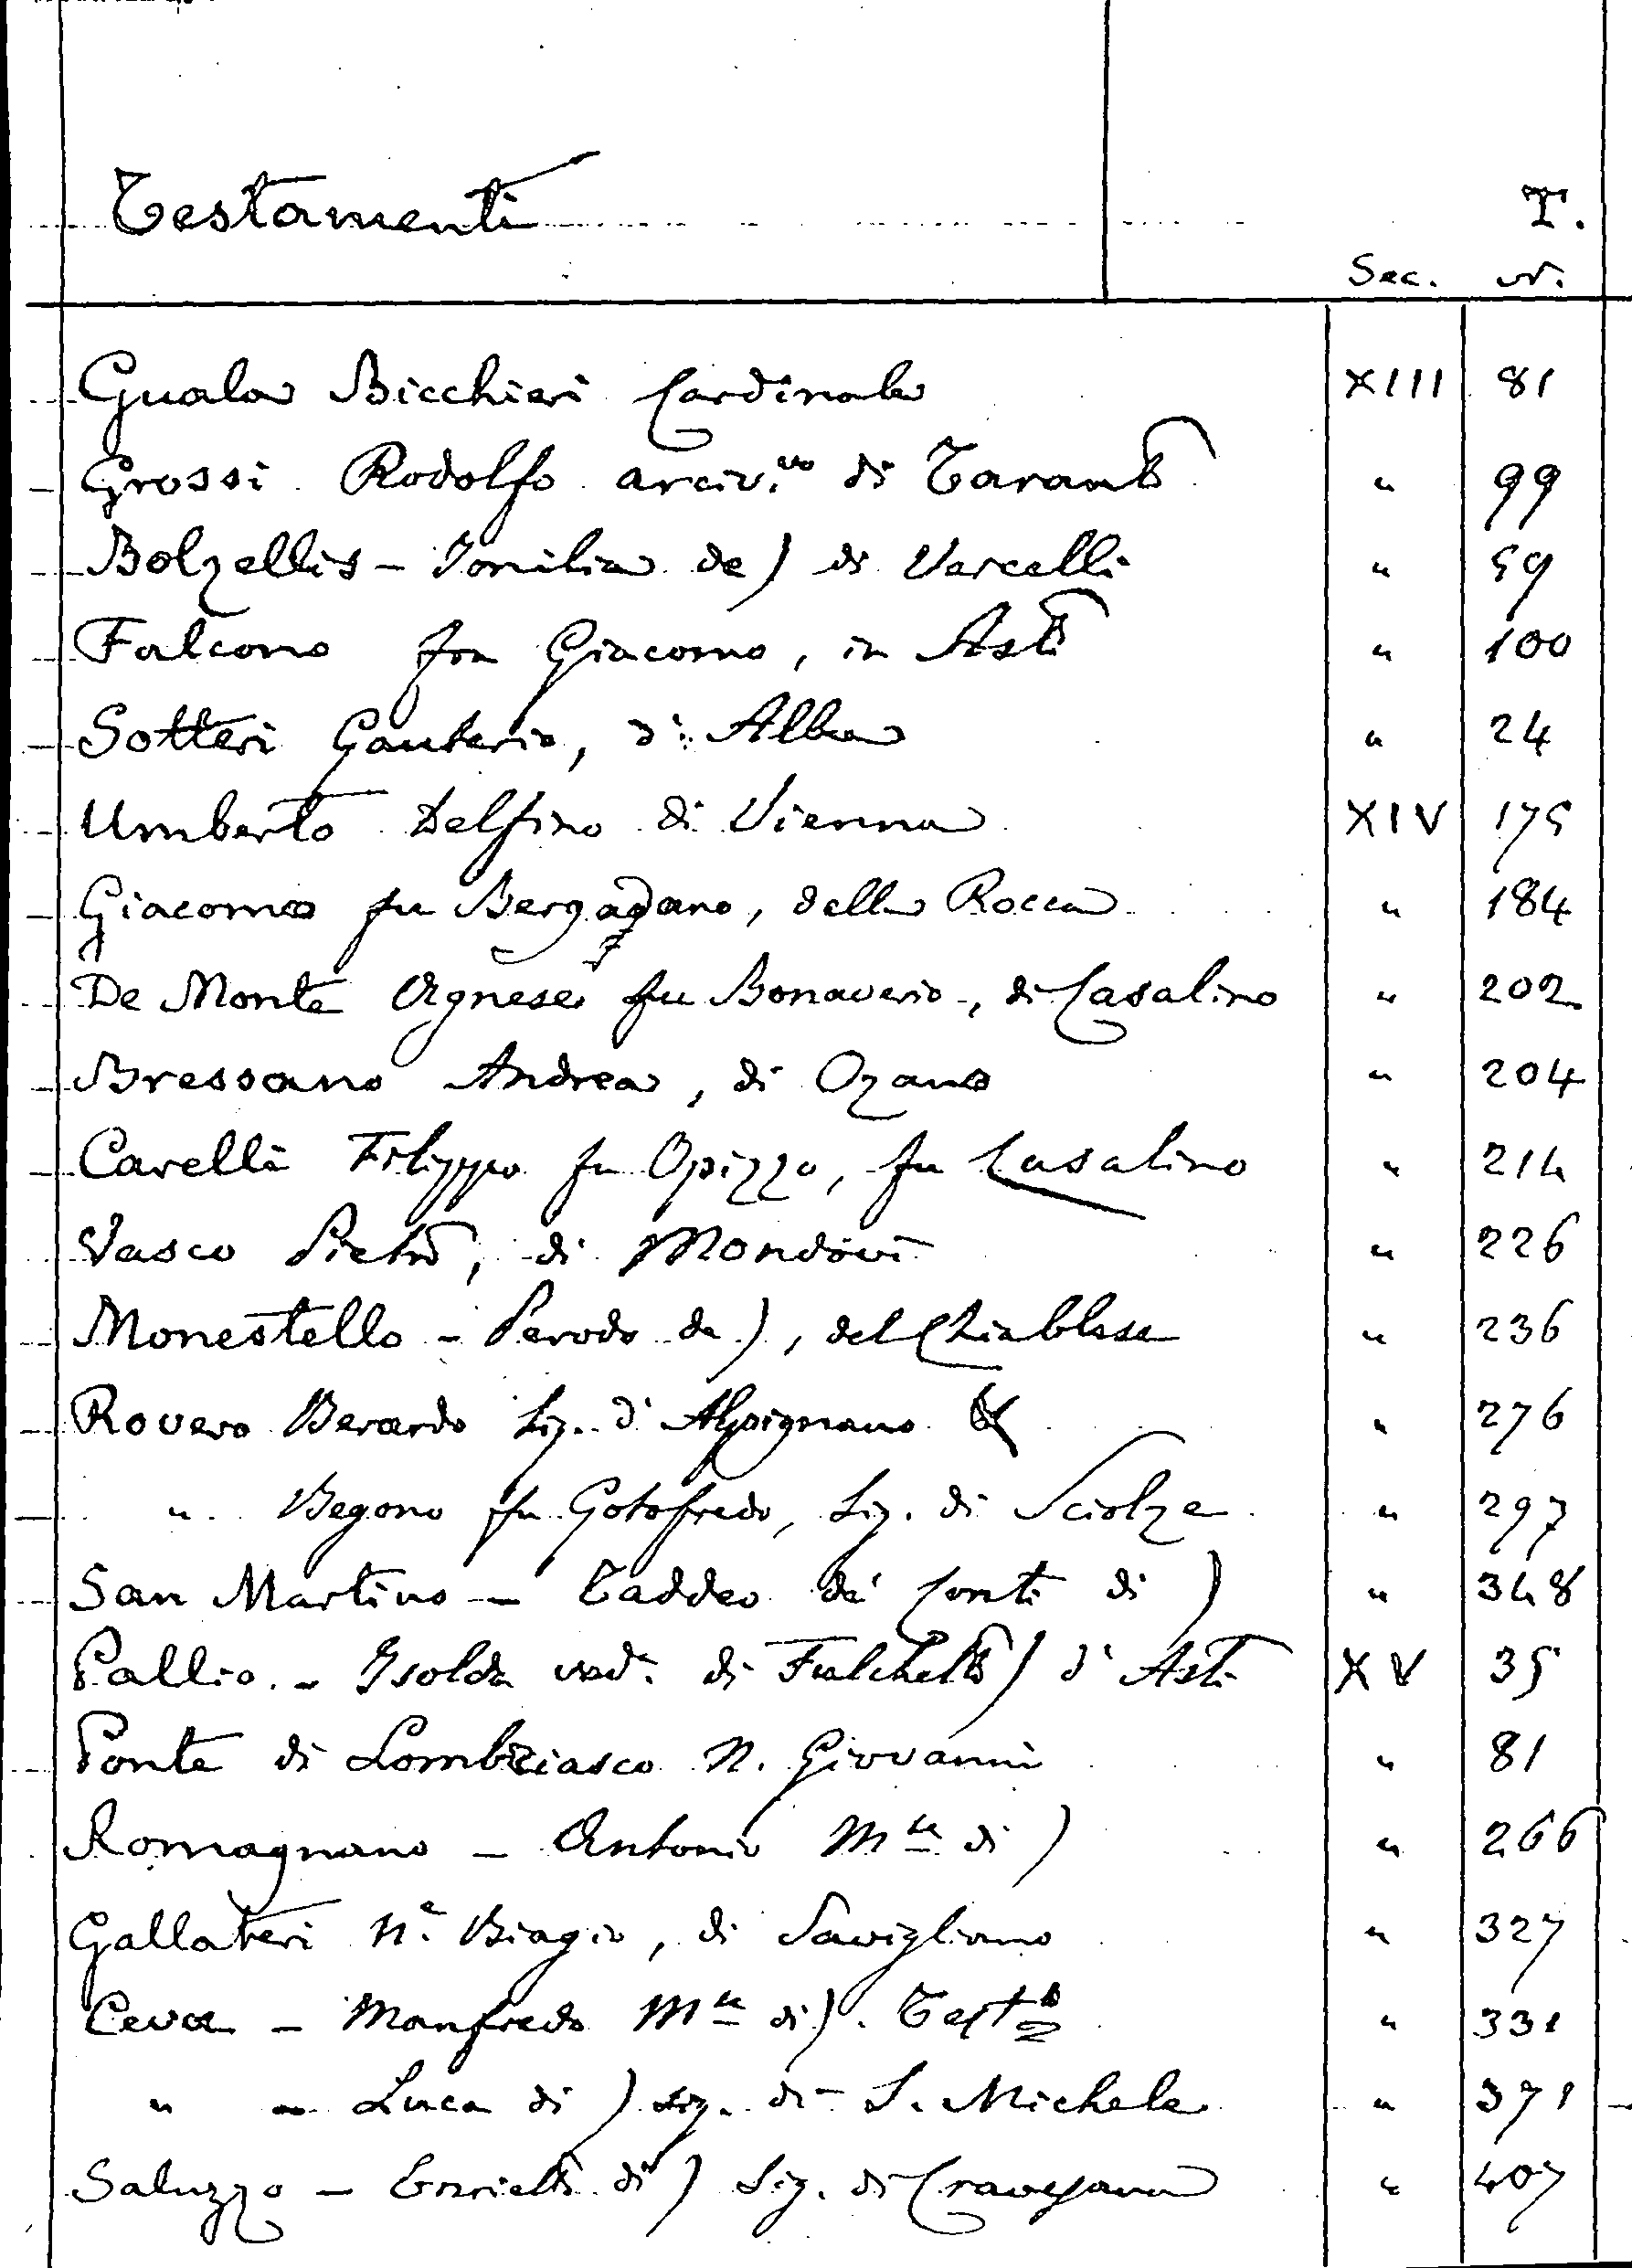 Testamenti T.
Sec. N.
Guala Bicchieri Cardinale XIII 81
Grossi Rodolfo arciv.vo di Taranto " 99
Bolzellis - Jonilia de) di Vercelli " 59
Falcone fra Giacomo, in Asti " 100
Sotteri Gauterio, di Alba " 24
Umberto Delfino di Vienna XIV 175
Giacomo fu Bergadano, della Rocca " 184
De Monte Agnese fu Bonaverio, di Casalino " 202
Bressano Andrea, di Ozano " 204
Cavelli Filippo fu Opizzo, fu Casalino " 214
Vasco Pietro, di Mondovì " 226
Monestello - Perodo de), del Chiablese " 236
Rovero Berardo Sig. d'Alpignano " 276
" Begono fu Gotofredo, Sig. di Sciolze " 297
San Martino - Taddeo de' Conti di) " 348
Pallio - Isolda ved. di Fulchetto) d'Asti XV 35
Ponte di Lombriasco N. Giovanni " 81
Romagnano - Antonio Mse di) " 266
Gallateri N.e Biagio, di Savigliano " 327
Ceva - Manfredo Mse di). Testo " 331
" - Luca di) sig. di S. Michele " 371
Saluzzo - Enrietto di) Sig. di Cravesana " 407